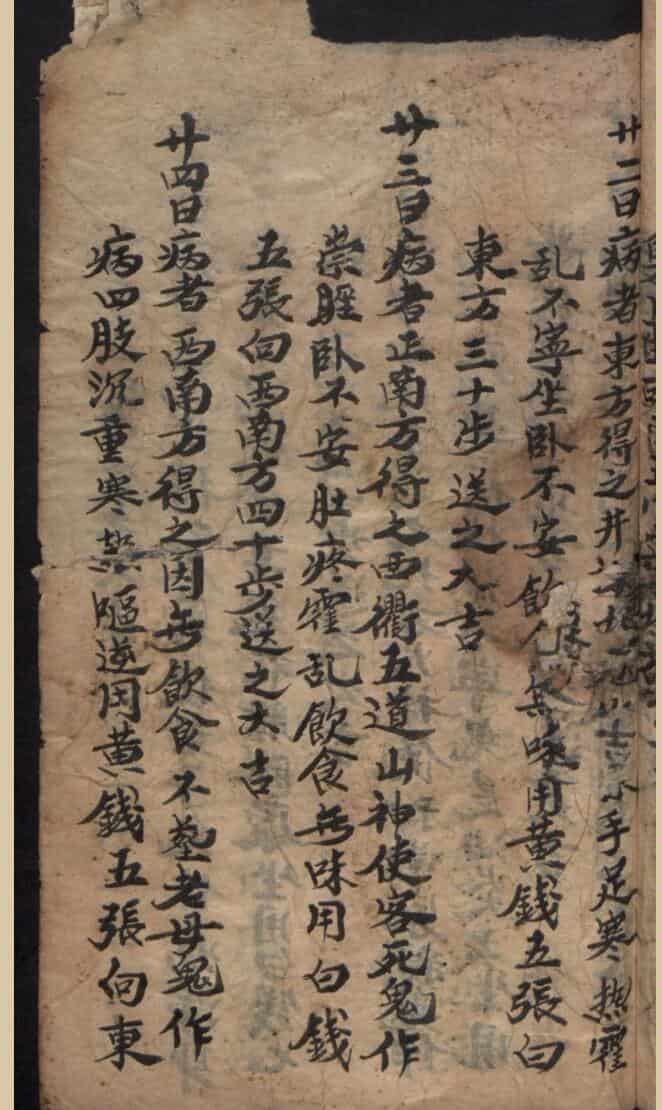 廿二日病者東方得之井手足寒熱霍
乱不寧坐卧不安飲無味用黄錢五張向
東方三十步送之大吉
廿三日病者正南方得之西衢五道山神使客死鬼作
祟睡卧不安肚疼霍乱飲食無味用白錢
五張向西南方四十步送之大吉
廿四日病者西南方得之因無飲食不老母鬼作
病四肢沉重寒熱嘔逆用黄錢五張向東